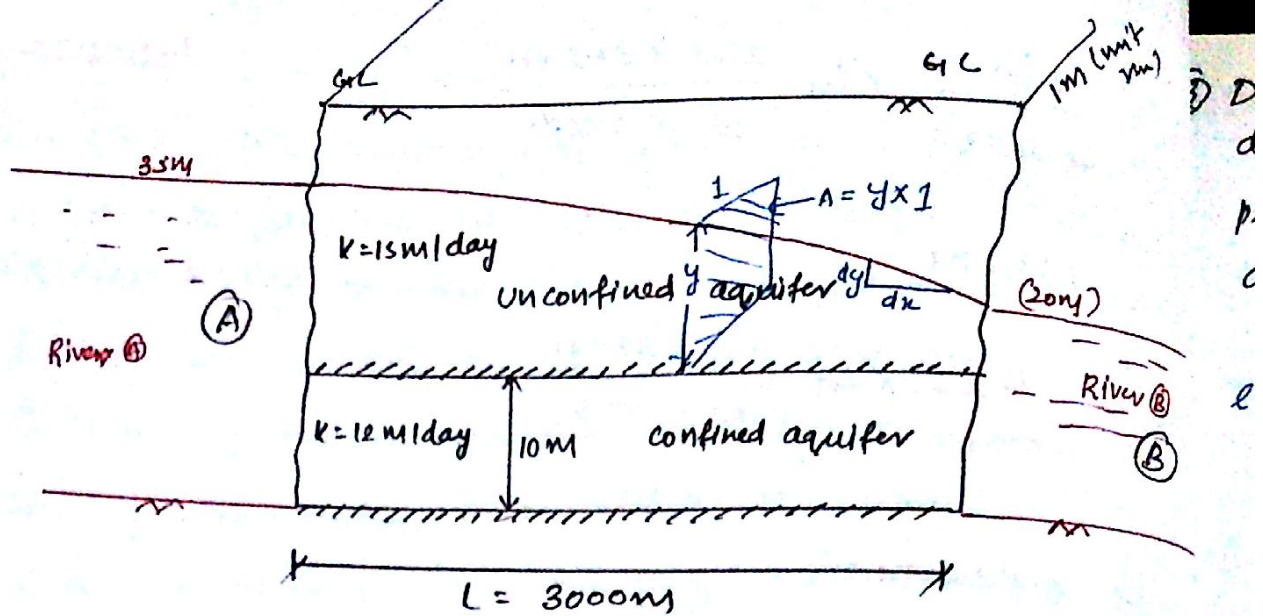 GL
GL
1m (unit
35m
1
A = y×1
K=15m/day
unconfined aquifer
y
dy
dx
(20m)
A
River A
River B
B
K=12m/day
10m
confined aquifer
L = 3000m